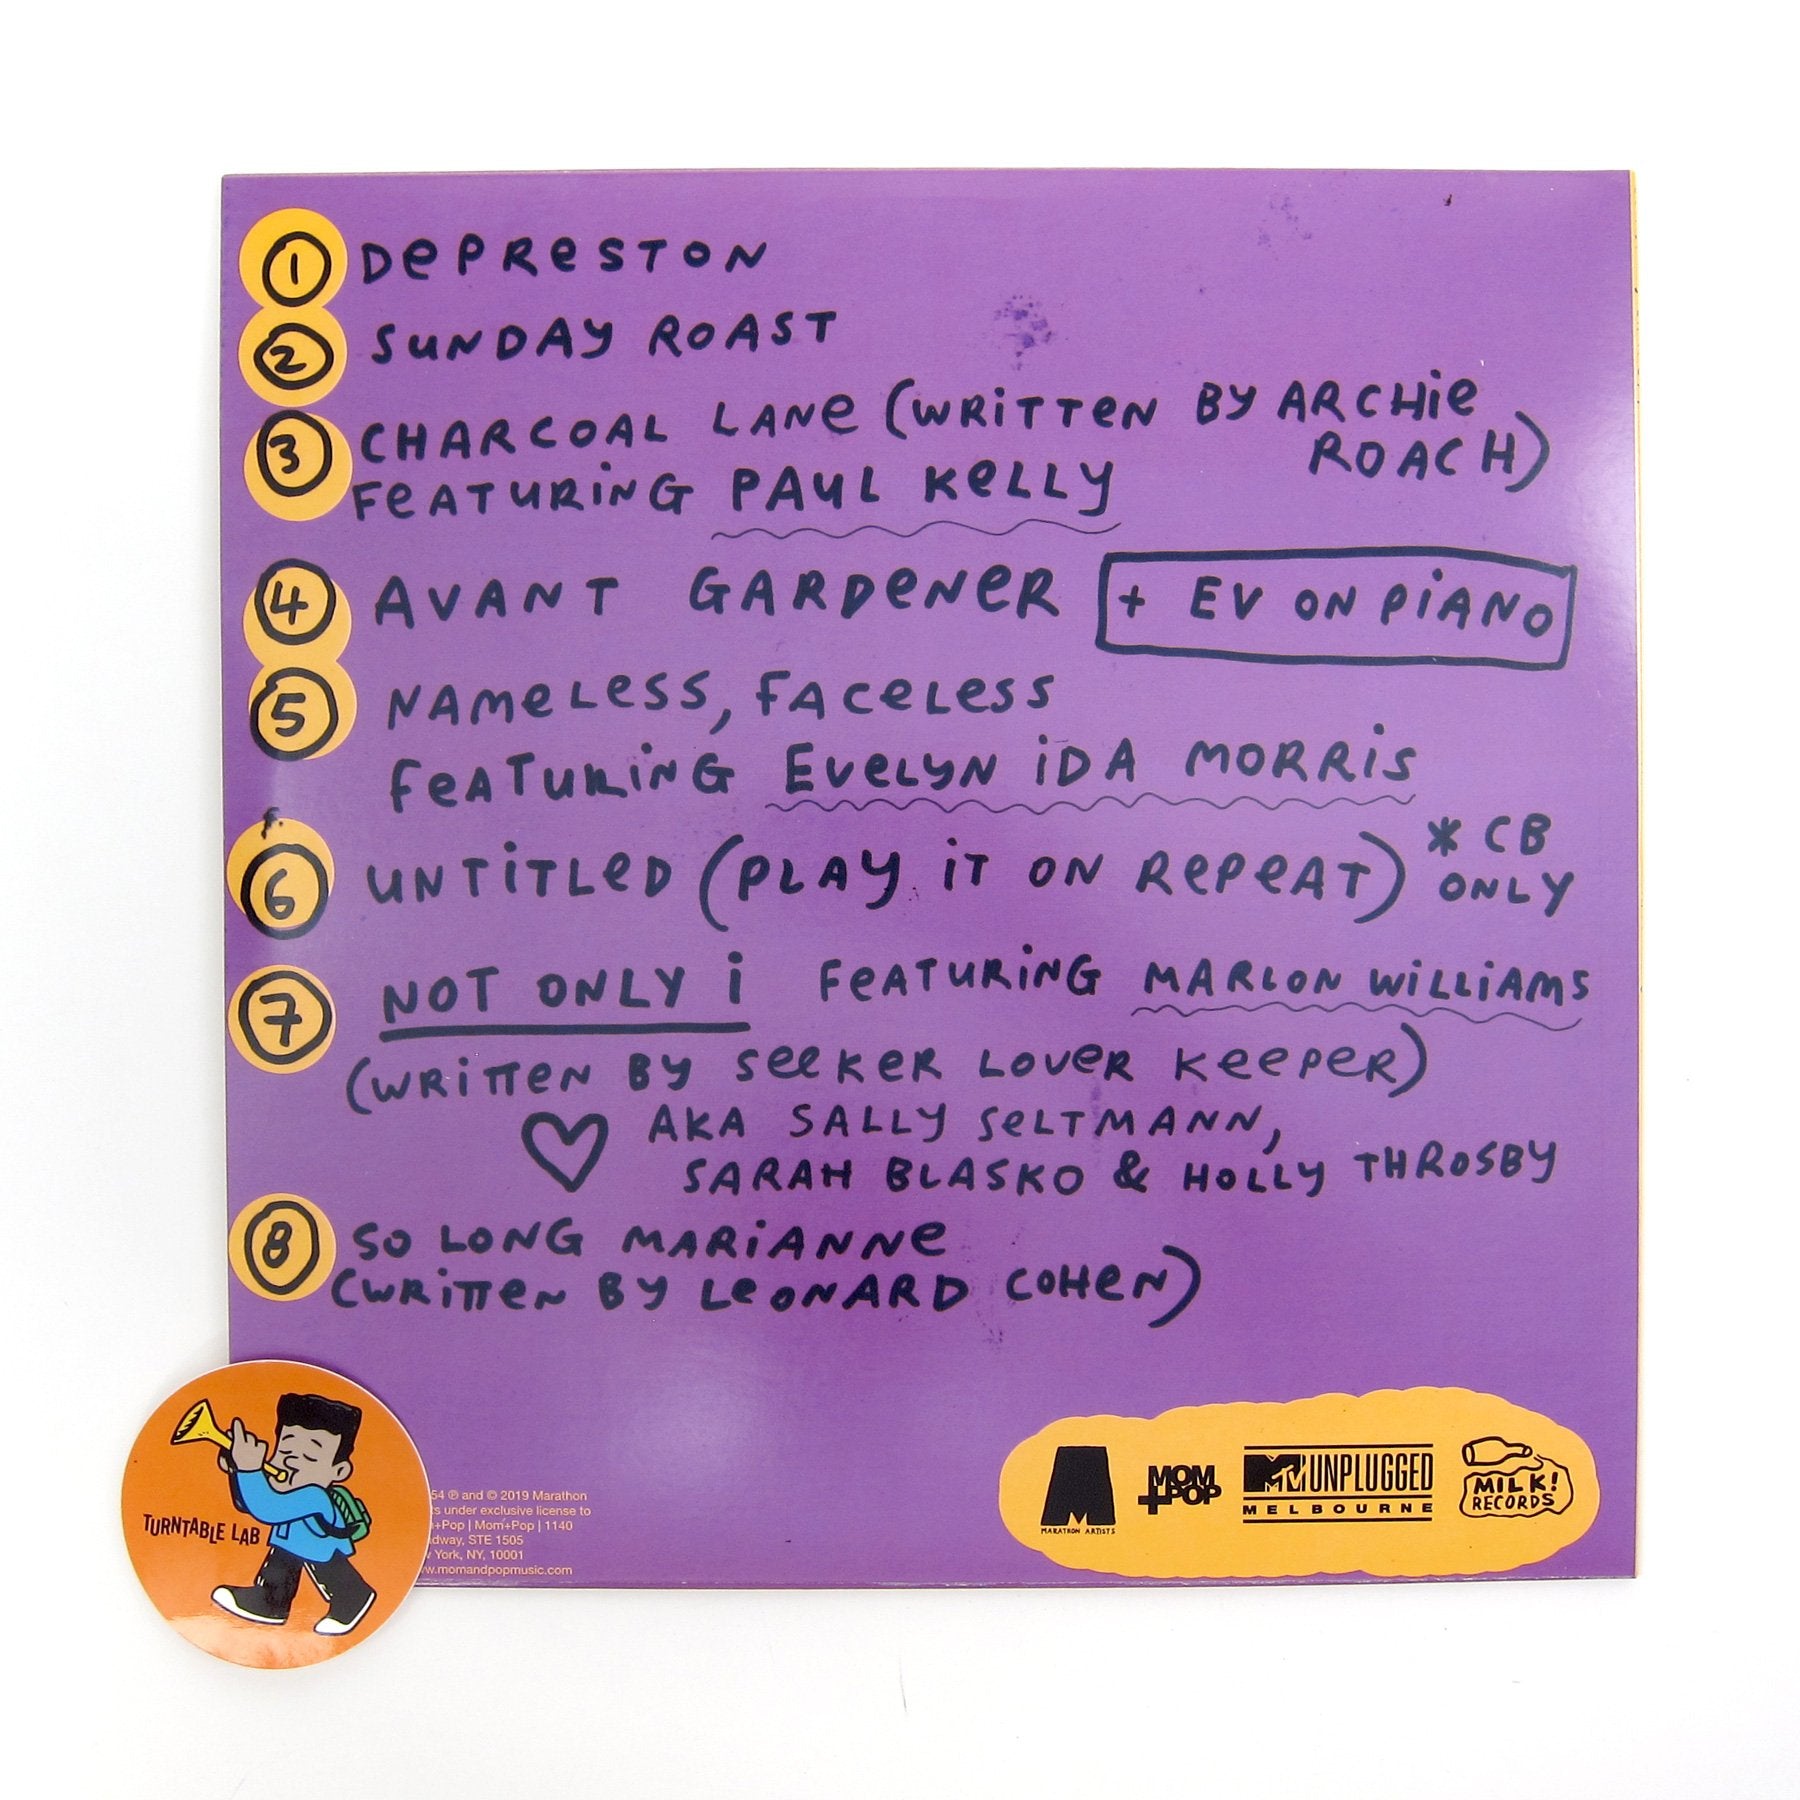 1 DEPRESTON
2 SUNDAY ROAST
3 CHARCOAL LANE (WRITTEN BY ARCHIE
ROACH)
FEATURING PAUL KELLY
4 AVANT GARDENER + EV ON PIANO
5 NAMELESS, FACELESS
FEATURING EVELYN IDA MORRIS
6 UNTITLED (PLAY IT ON REPEAT) * CB
ONLY
7 NOT ONLY i FEATURING MARLON WILLIAMS
(WRITTEN BY SEEKER LOVER KEEPER)
AKA SALLY SELTMANN,
SARAH BLASKO & HOLLY THROSBY
8 SO LONG MARIANNE
(WRITTEN BY LEONARD COHEN)
TURNTABLE LAB
54 ℗ and © 2019 Marathon
under exclusive license to
+Pop | Mom+Pop | 1140
STE 1505
York, NY, 10001
momandpopmusic.com
M
MARATHON ARTISTS
MOM
+POP
MTV UNPLUGGED
MELBOURNE
MILK!
RECORDS